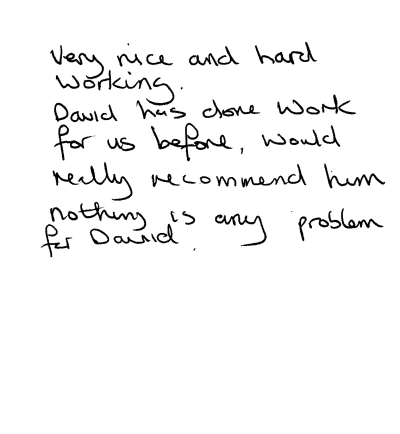 Very nice and hard
working.
David has done work
for us before, would
really recommend him
nothing is any problem
for David.